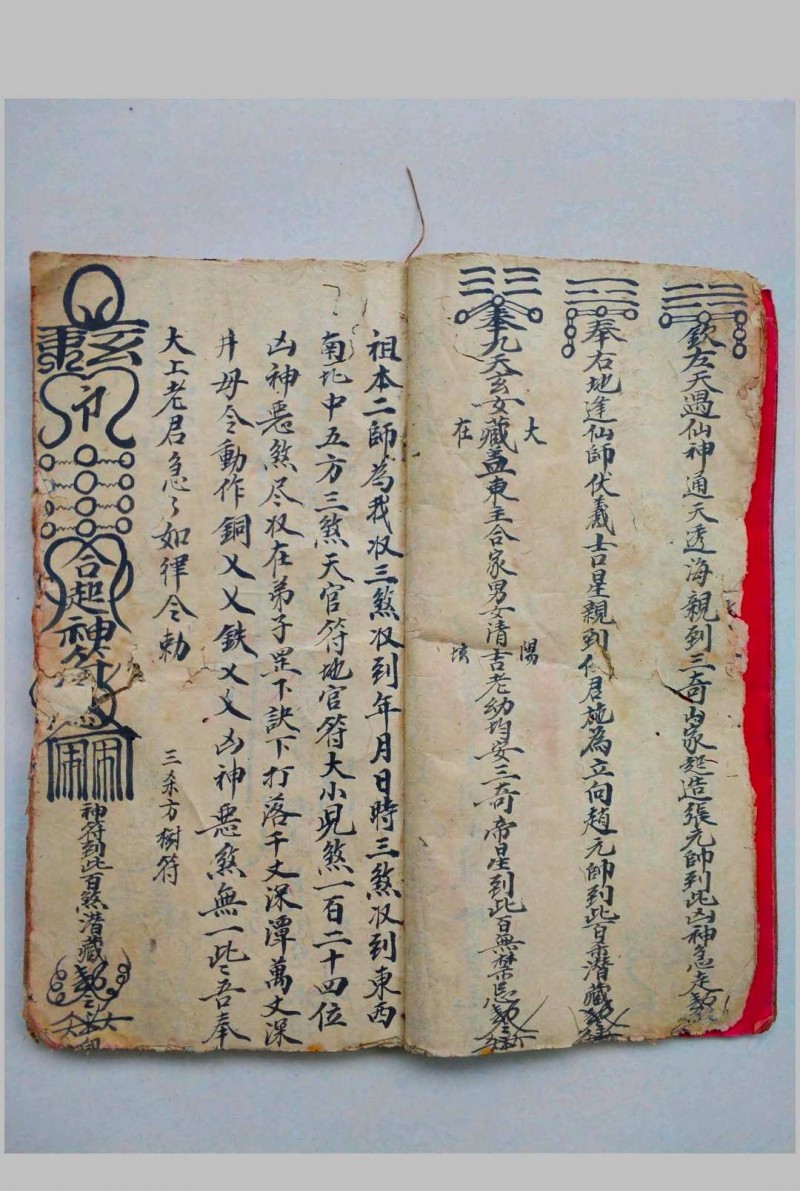 欽左天遇仙神通天透海親到三奇内家起造張元帥到此凶神急走
奉右地逢仙師伏羲吉星親到 施為立向趙元帥到此百 潜藏
奉九天玄女藏盖東主合家男女清吉老幼均安三奇帝星到此百無禁忌
大 陽
在 坟
祖本二師為我收三煞收到年月日時三煞收到東西
南北中五方三煞天官符地官符大小児煞一百二十四位
凶神惡煞尽收在弟子罡下訣下打落千丈深潭萬丈深
井毋令動作銅乂乂鉄乂乂凶神惡煞無一些〻吾奉
大上老君急〻如律令勅
三杀方樹符
玄
合起神符
神符到此百煞潜藏